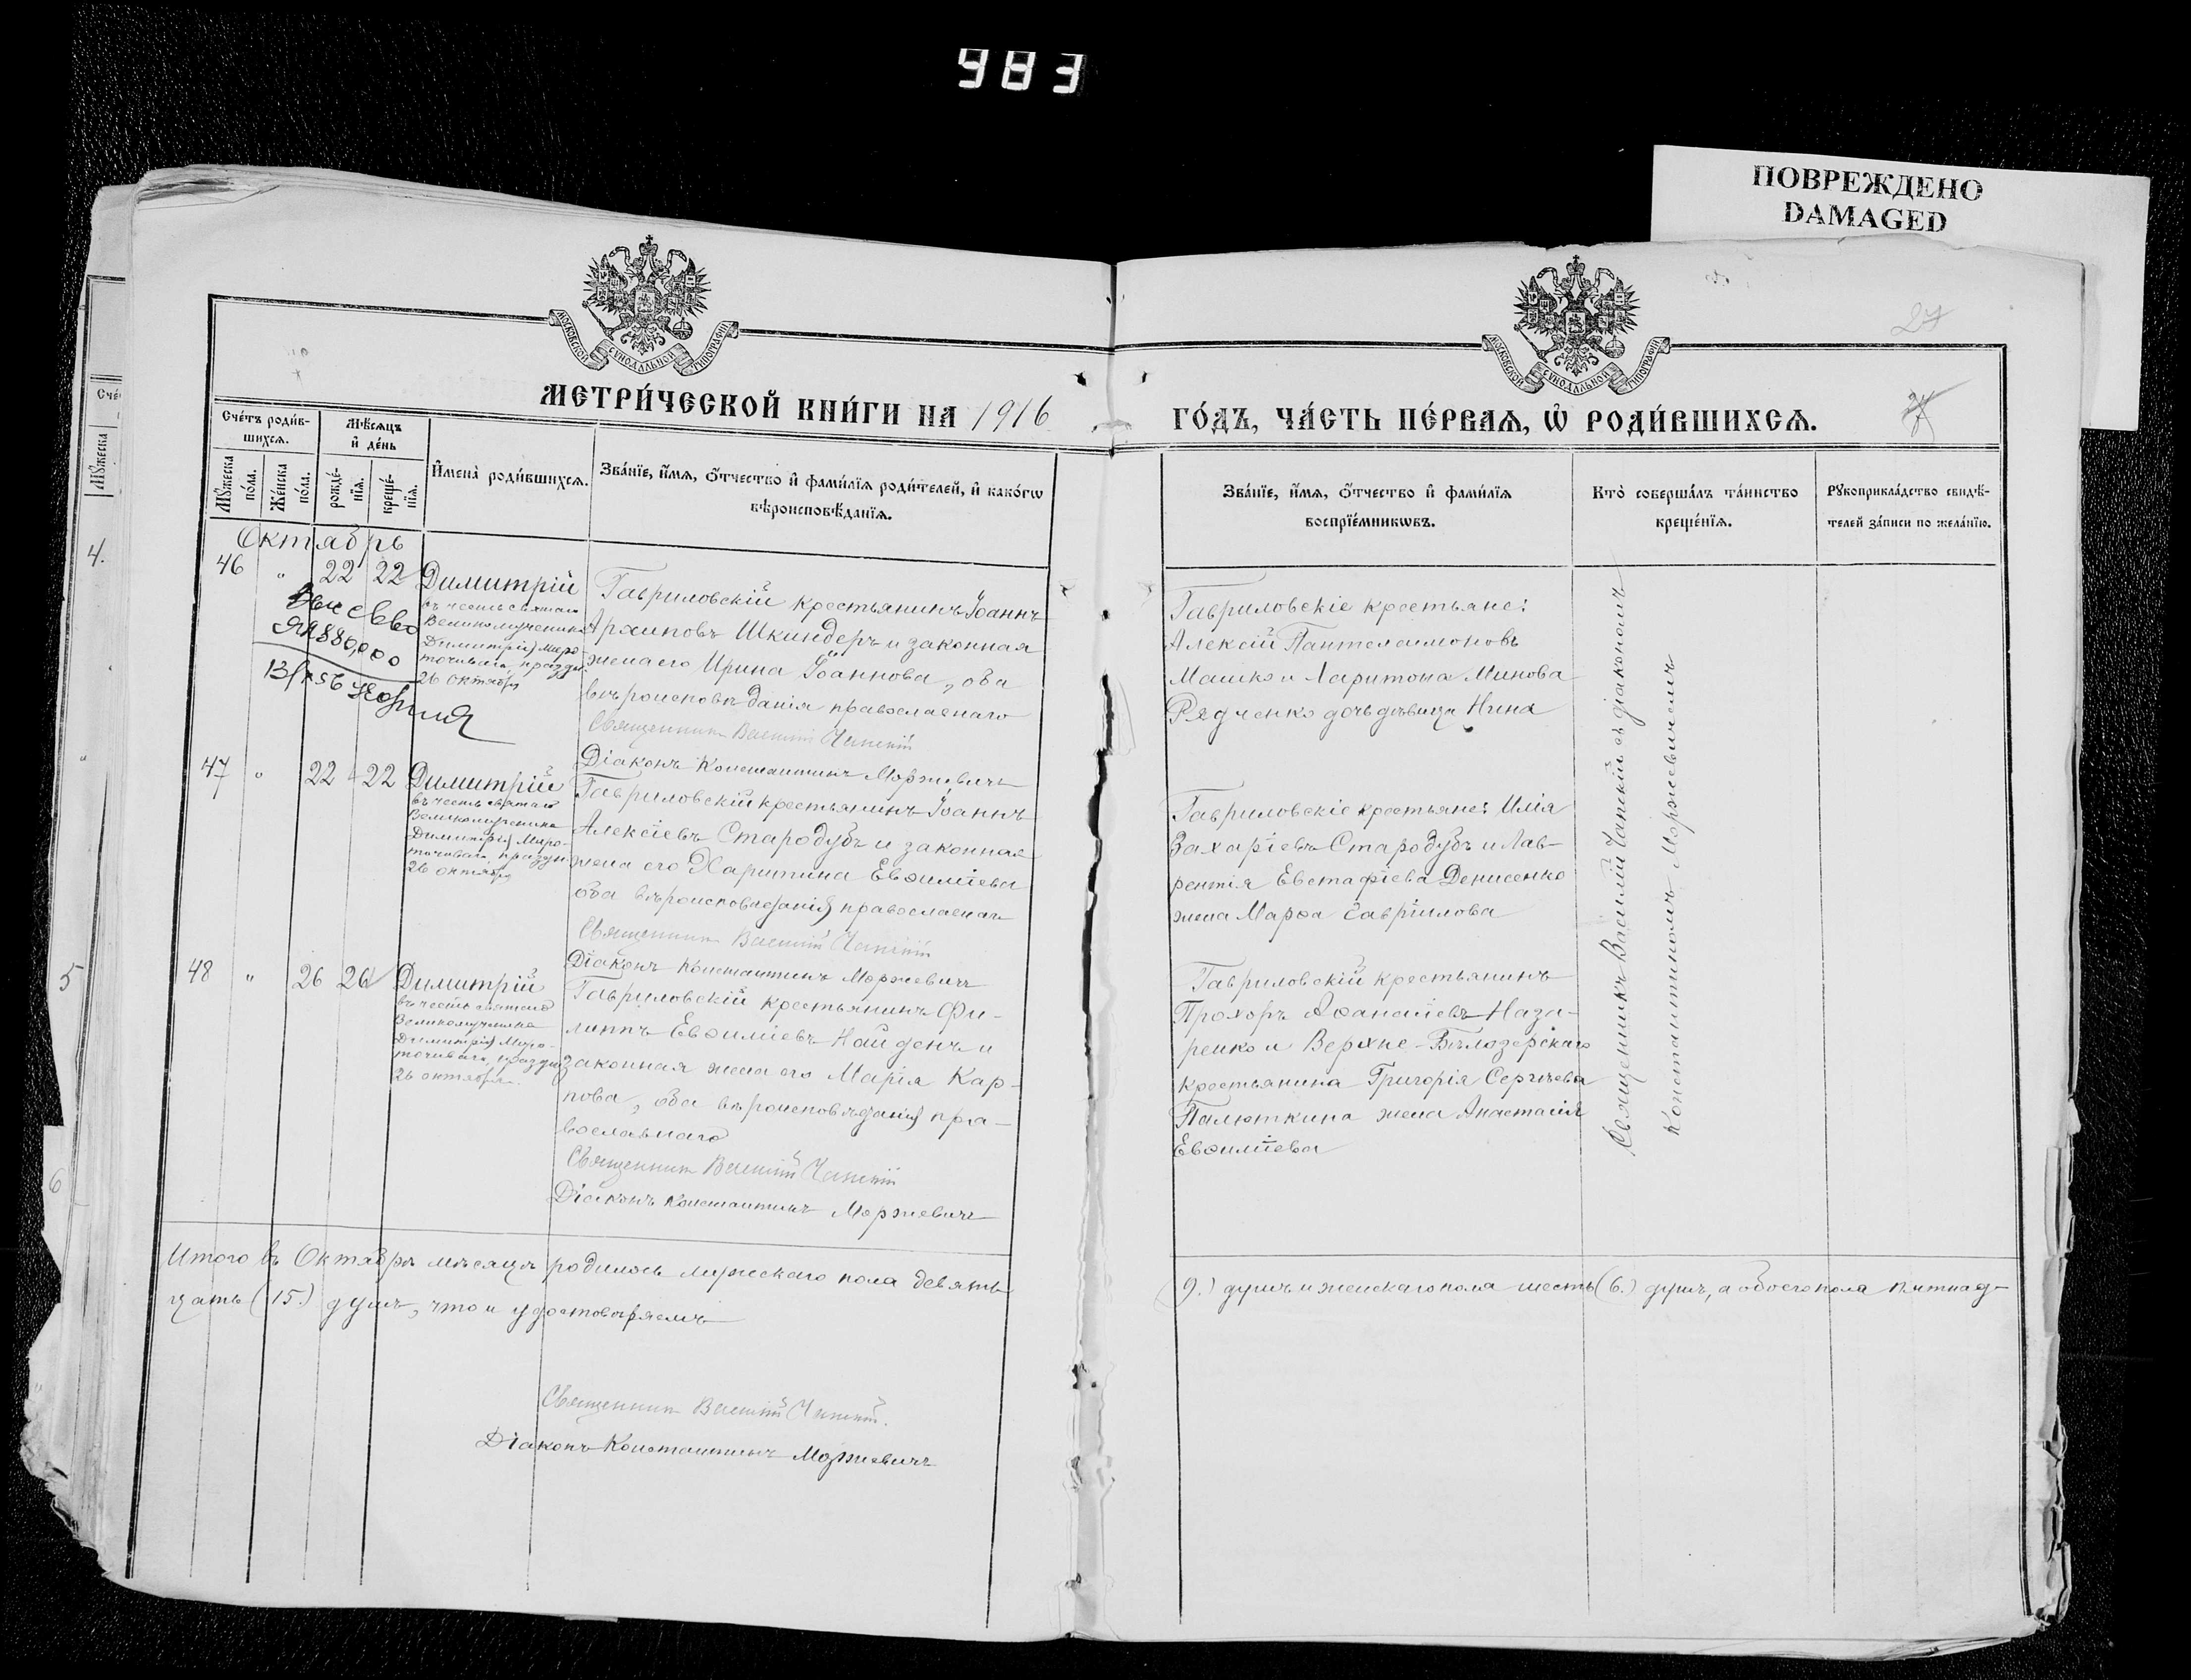 983
ПОВРЕЖДЕНО
DAMAGED
МОСКОВСКОЙ СѴНОДАЛЬНОЙ ТИПОГРАФІИ
МОСКОВСКОЙ СѴНОДАЛЬНОЙ ТИПОГРАФІИ
27
МЕТРИ́ЧЕСКОЙ КНИ́ГИ НА 1916
ГО́ДЪ, ЧА́СТЬ ПЕ́РВАѦ, Ѡ҆ РОДИ́ВШИХСѦ.
27
Сче́тъ роди́в-
шихсѧ.
Мѣ́сѧцъ
и҆ де́нь
Мꙋ́жеска
по́ла.
Же́нска
по́ла.
рожде́-
нїѧ.
креще́-
нїѧ.
И҆мена̀ роди́вшихсѧ.
Зва́нїе, и҆́мѧ, ѻ҆́тчество и҆ фами́лїѧ роди́телей, и҆ како́гѡ
вѣроисповѣ́данїѧ.
Зва́нїе, и҆́мѧ, ѻ҆́тчество и҆ фами́лїѧ
воспрїе́мникѡвъ.
Кто̀ соверша́лъ та́инство
креще́нїѧ.
Рꙋкоприкла́дство свидѣ́-
телей за́писи по жела́нїю.
Октябрь
46 " 22 22 Димитрій
въ честь святаго
Великомученика
Димитрія Миро-
точиваго, праздн.
26 октября
Гавриловскій крестьянинъ Іоаннъ
Архиповъ Шкиндеръ и законная
жена его Ирина Іоаннова, оба
вѣроисповѣданія православнаго
Священникъ Василій Чапскій
Діаконъ Константинъ Моржевичъ
Гавриловскіе крестьяне:
Алексій Пантелеимоновъ
Машко и Харитона Минова
Редченко дочь дѣвица Нина
47 " 22 22 Димитрій
въ честь святаго
Великомученика
Димитрія Миро-
точиваго, праздн.
26 октября
Гавриловскій крестьянинъ Іоаннъ
Алексіевъ Стародубъ и законная
жена его Харитина Евѳиміева
оба вѣроисповѣданія православнаго
Священникъ Василій Чапскій
Діаконъ Константинъ Моржевичъ
Гавриловскіе крестьяне: Илія
Захаріевъ Стародубъ и Лав-
рентія Евстафіева Денисенко
жена Марѳа Гавріилова
48 " 26 26 Димитрій
въ честь святаго
Великомученика
Димитрія Миро-
точиваго, праздн.
26 октября.
Гавриловскій крестьянинъ Фи-
липпъ Евѳиміевъ Найденъ и
законная жена его Марія Кар-
пова, оба вѣроисповѣданія пра-
вославнаго
Священникъ Василій Чапскій
Діаконъ Константинъ Моржевичъ
Гавриловскій крестьянинъ
Прохоръ Аѳанасіевъ Наза-
ренко и Верхне-Бѣлозерскаго
крестьянина Григорія Сергѣева
Палюткина жена Анастасія
Евѳиміева
Священникъ Василій Чапскій съ діакономъ
Константиномъ Моржевичемъ
Итого въ Октябрѣ мѣсяцѣ родилось мужескаго пола девять
(9.) душъ и женскаго пола шесть (6.) душъ, а обоего пола пятнад-
цать (15.) душъ, что и удостовѣряемъ
Священникъ Василій Чапскій.
Діаконъ Константинъ Моржевичъ
4.
5
6